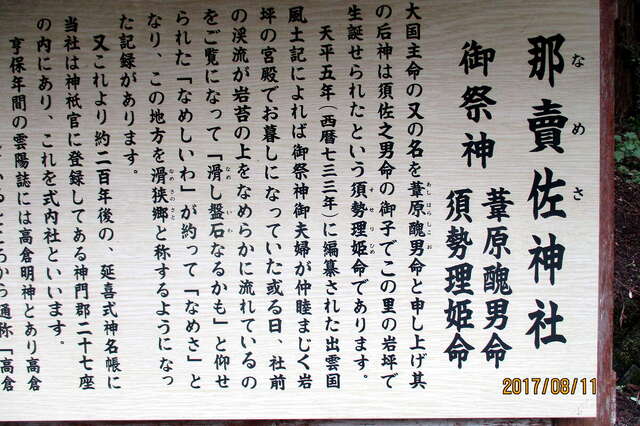 那賣佐神社
なめさ
御祭神
葦原醜男命
須勢理姫命
大国主命の又の名を葦原醜男命と申し上げ其
あしはらしこお
の后神は須佐之男命の御子でこの里の岩坪で
生誕せられたという須勢理姫命であります。
すせりひめ
天平五年(西暦七三三年)に編纂された出雲国
風土記によれば御祭神御夫婦が仲睦まじく岩
坪の宮殿でお暮しになっていた或る日、社前
の渓流が岩苔の上をなめらかに流れているの
をご覧になって「滑し盤石なるかも」と仰せ
なめ いわ
られた「なめしいわ」が約って「なめさ」と
なり、この地方を滑狭郷と称するようになっ
なめさのさと
た記録があります。
又これより約二百年後の、延喜式神名帳に
当社は神祇官に登録してある神門郡二十七座
の内にあり、これを式内社といいます。
亨保年間の雲陽誌には高倉明神とあり高倉
ところから通称「高倉
2017/08/11